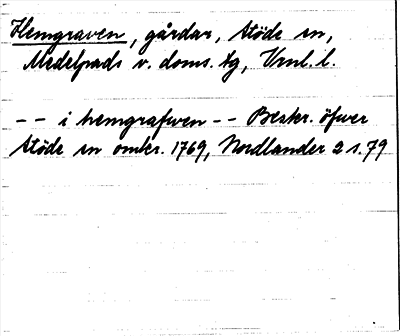 Hemgraven, gårdar, Stöde sn,
Medelpads v. doms. tg, Vrnl. l.
-- i hemgrafwen -- Beskr. öfwer
Stöde sn omkr. 1769, Nordlander 2 s. 79